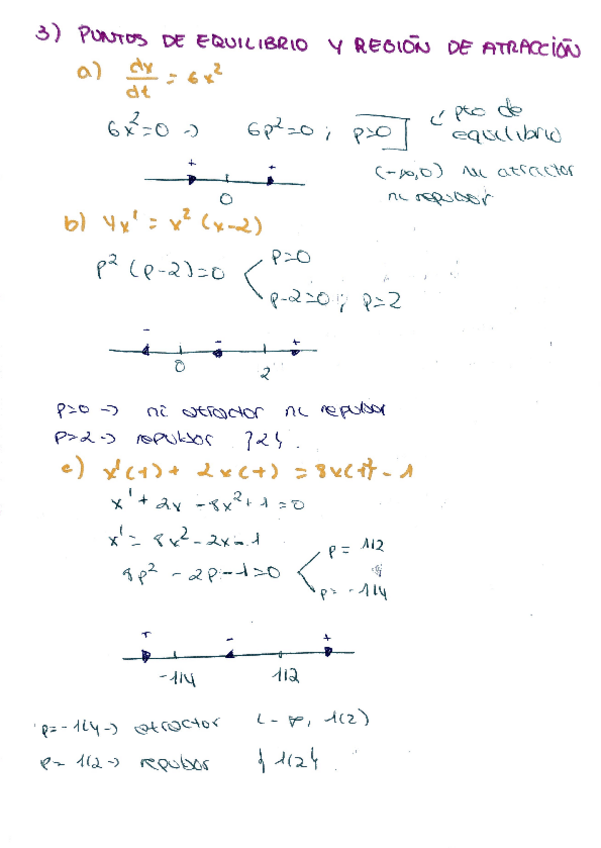 3) PUNTOS DE EQUILIBRIO Y REGIÓN DE ATRACCIÓN
a) dx/dt = 6x²
6x²=0 → 6p²=0 ; p=0 ← pto de equilibrio
+ +
0
(-∞,0) ni atractor ni repulsor
b) 4x' = x² (x-2)
p² (p-2)=0
p=0
p-2=0 ; p=2
- - +
0 2
p=0 → ni atractor ni repulsor
p=2 → repulsor {2}.
c) x'(t) + 2x(t) = 8x(t)² - 1
x' + 2x - 8x² + 1 = 0
x' = 8x² - 2x - 1
8p² - 2p - 1 = 0
p = 1/2
p = -1/4
+ - +
-1/4 1/2
p=-1/4 → atractor (-∞, 1/2)
p= 1/2 → repulsor {1/2}.